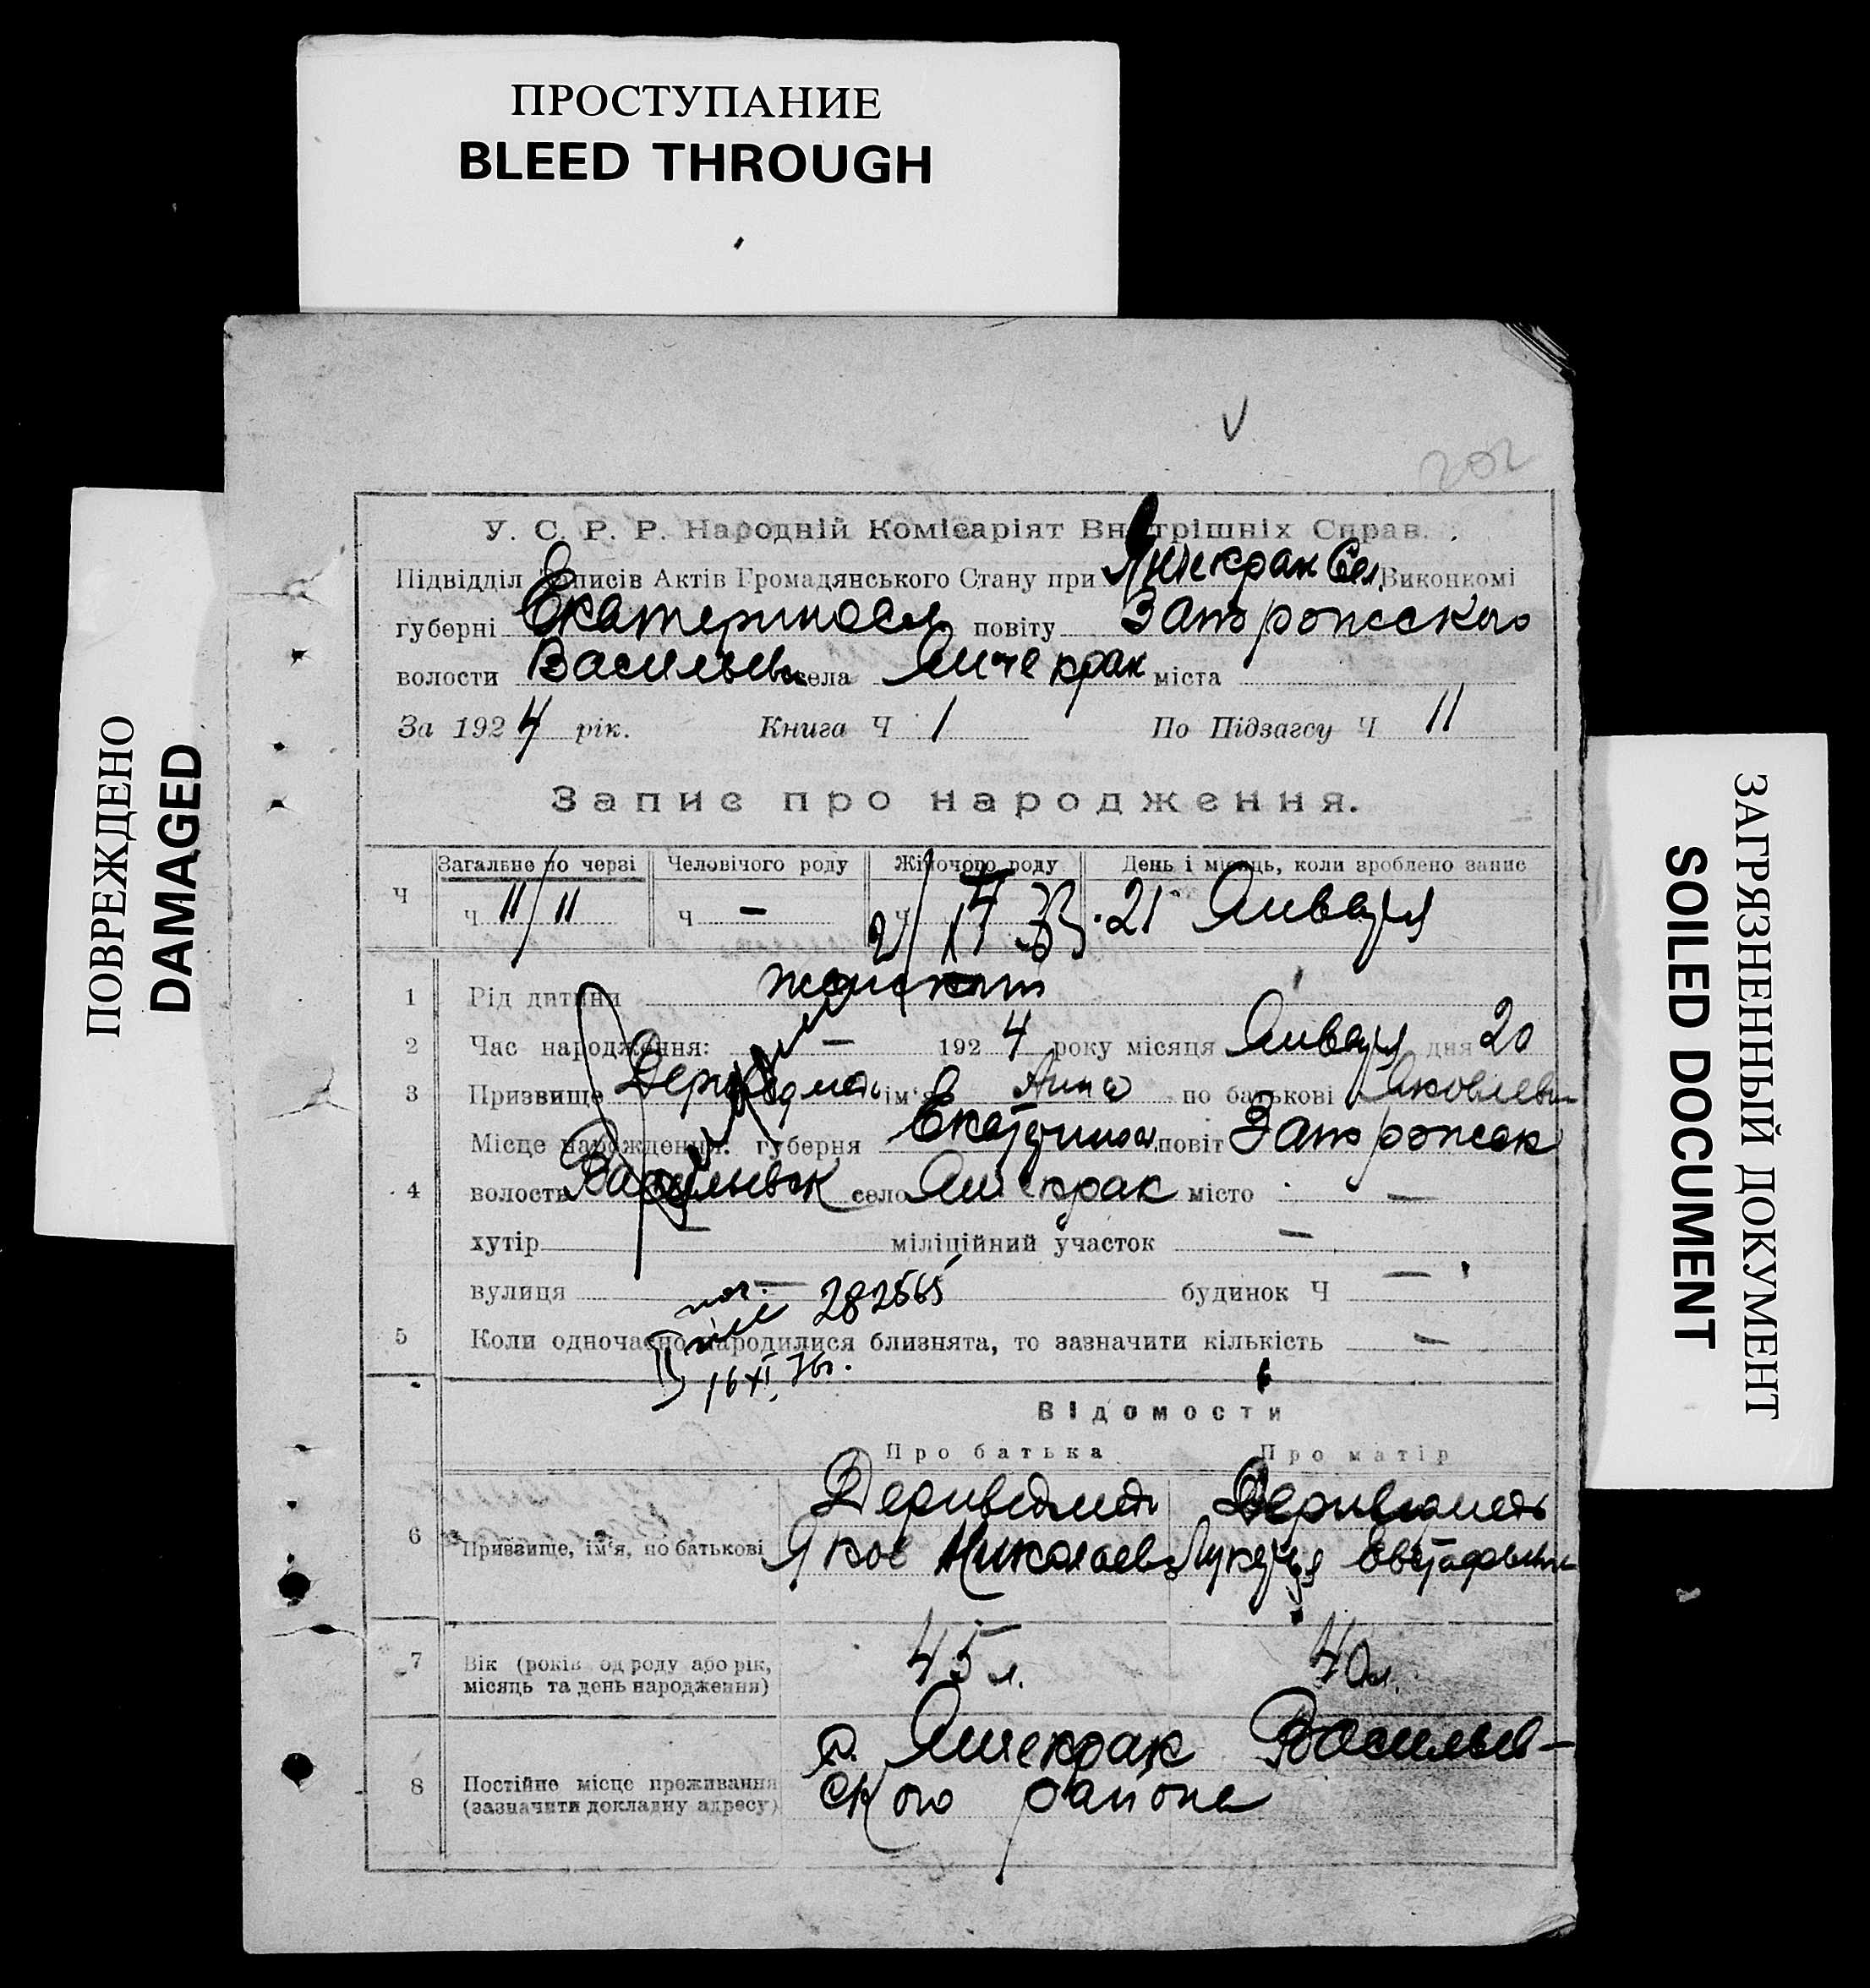 ПРОСТУПАНИЕ
BLEED THROUGH
V
202
У. С. Р. Р. Народній Комісаріят Внутрішніх Справ.
Підвідділ Записів Актів Громадянського Стану при Янчекрак Сел. Виконкомі
губерні Екатериносл повіту Запорожского
волости Васильев села Янчекрак міста
За 1924 рік. Книга Ч 1 По Підзагсу Ч 11
Запис про народження.
Ч Загальне по черзі Человічого роду Жіночого роду День і місяць, коли зроблено запис
Ч 11/11 Ч — Ч 21 Января
1 Рід дитини женский
2 Час народження: — 1924 року місяця Января дня 20
3 Призвище ім'я Анна по батькові Яковлевн
Місце народження: губерня Екатеринос повіт Запорожск
4 волость Васильевск село Янчекрак місто —
хутір — міліційний участок —
вулиця — будинок Ч —
282565
5 Коли одночасно народилися близнята, то зазначити кількість —
16 XI
Відомости
Про батька Про матір
6 Призвище, ім'я, по батькові
Яков Николаев Лукерья Евстафьевн
7 Вік (років од роду або рік, місяць та день народження) 45 л. 40 л.
8 Постійне місце проживання (зазначити докладну адресу) с. Янчекрак Васильев-
ского района
ПОВРЕЖДЕНО
DAMAGED
ЗАГРЯЗНЕННЫЙ ДОКУМЕНТ
SOILED DOCUMENT